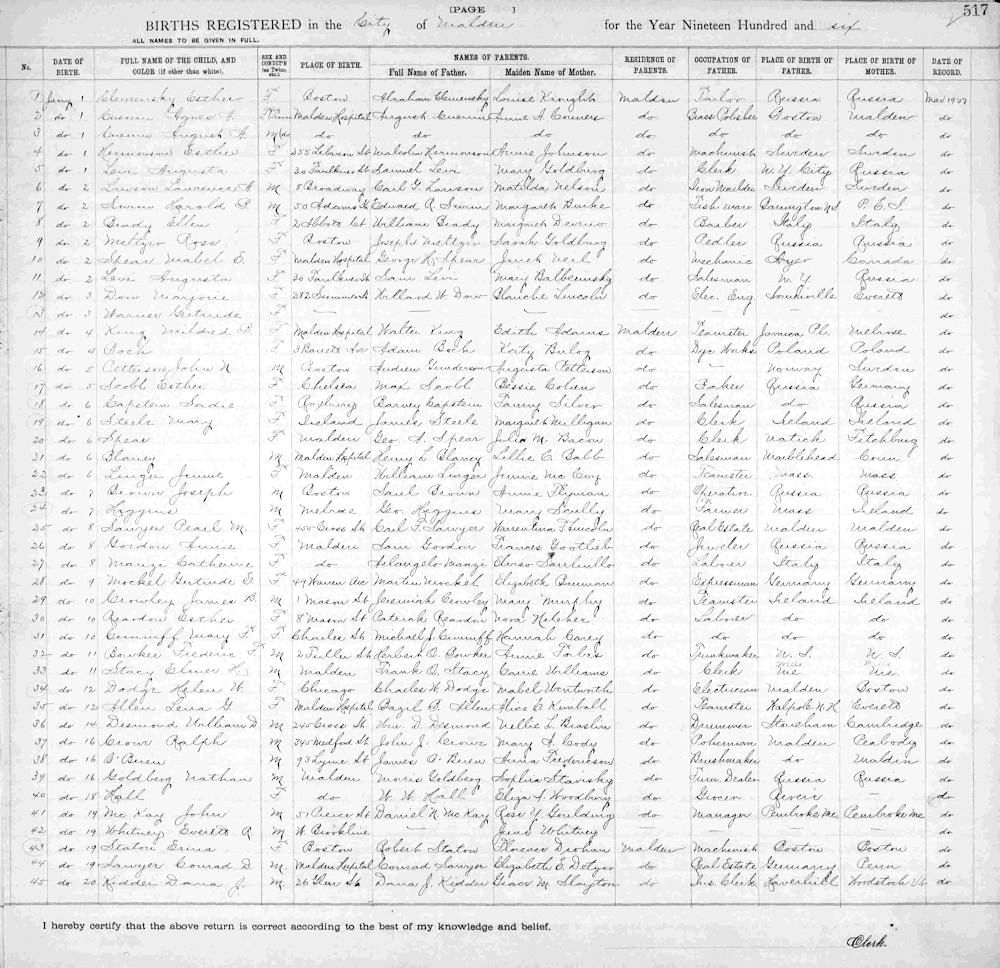 [PAGE ] 517
BIRTHS REGISTERED in the City of Malden for the Year Nineteen Hundred and six
ALL NAMES TO BE GIVEN IN FULL.
No. DATE OF BIRTH. FULL NAME OF THE CHILD, AND COLOR (if other than white). SEX AND CONDIT'N (as Twins, etc.) PLACE OF BIRTH. NAMES OF PARENTS. Full Name of Father. Maiden Name of Mother. RESIDENCE OF PARENTS. OCCUPATION OF FATHER. PLACE OF BIRTH OF FATHER. PLACE OF BIRTH OF MOTHER. DATE OF RECORD.
1 Jany 1 Clemensky Esther F Boston Abraham Clemensky Louise Malden Tailor Russia Russia Mar 1907
2 do 1 Agnes A. F Twin Malden Hospital August Annie A. Conners do Glass Polisher Boston Malden do
3 do 1 August A. M do do do do do do do do do
4 do 1 Esther F 255 Lebanon St Malcolm Annie Johnson do Machinist Sweden Sweden do
5 do 1 Levi Augusta F 30 Faulkner St Samuel Levi Mary Goldberg do Clerk N.Y. City Russia do
6 do 2 Lawson Lawrence A. M 8 Broadway Carl G. Lawson Matilda Nelson do Iron Moulder Sweden Sweden do
7 do 2 Irwin Harold B. M 50 Adams St Edward R. Irwin Margaret Burke do Fish ware Barrington N.S. P.E.I. do
8 do 2 Brady Ellen F 2 Abbott Ct William Brady Margaret do Barber Italy Italy do
9 do 2 Meltzer Rose F Boston Joseph Meltzer Sarah Goldburg do Pedler Russia Russia do
10 do 2 Spear Mabel E. F Malden Hospital George H. Spear Janet Neil do Mechanic Ayer Canada do
11 do 2 Levi Augusta F 30 Faulkner St Sam Levi Mary do Salesman N.Y. Russia do
12 do 3 Dow Marjorie F 282 Summer St Willard W. Dow Blanche Lincoln do Elec. Eng Somerville Everett do
13 do 3 Warner Gertrude F — — — — — do
14 do 4 King Mildred F. F Malden Hospital Walter King Edith Adams Malden Teamster Jamaica Pl. Melrose do
15 do 4 Boch F 3 Barrett Ave Adam Boch Katy Bulog do Dye Works Poland Poland do
16 do 5 Petterson John N. M Boston Andrew Gunderson Augusta Petterson do — Norway Sweden do
17 do 5 Scobb Esther F Chelsea Max Scobb Bessie Cohen do Baker Russia Germany do
18 do 6 Capstein Sadie F Roxbury Barney Capstein Fanny Silver do Salesman do Russia do
19 do 6 Steele Mary F Ireland James Steele Margaret Milligan do Clerk Ireland Ireland do
20 do 6 Spear F Malden Geo. A. Spear Julia M. Bacon do Clerk Natick Fitchburg do
21 do 6 Blaney M Malden Hospital Henry L. Blaney Lillie C. Babb do Salesman Marblehead Conn do
22 do 6 Linger Jennie F Malden William Linger Jennie Mc Coy do Teamster Mass. Mass do
23 do 7 Brown Joseph M Boston Sarel Brown Annie Flyman do Operative Russia Russia do
24 do 7 Higgins M Melrose Geo. Higgins Mary Scully do Farmer Mass Ireland do
25 do 8 Sawyer Pearl M. F 450 Cross St Carl F. Sawyer Warrentina T. Lincoln do Real Estate Malden Malden do
26 do 8 Gordon Annie F Malden Sam Gordon Frances Gootlieb do Jeweler Russia Russia do
27 do 8 Manzi Catherine F do Manzi do Laborer Italy Italy do
28 do 9 Mockel Gertrude E. F 49 Warren Ave Martin Mockel Elizabeth do Expressman Germany Germany do
29 do 10 Crowley James B. M 1 Mason St Jeremiah Crowley Mary Murphy do Teamster Ireland Ireland do
30 do 10 Reardon Esther F 8 Mason St Patrick Reardon Nora Kelcher do Laborer do do do
31 do 10 Cunniff Mary F. F Charles St Michael J. Cunniff Hannah Carey do do do do do
32 do 11 Bowker Frederic F. M 2 Fuller St Herbert O. Bowker Annie Forbes do Trunkmaker N.S. N.S. do
33 do 11 Stacy Elmer H. M Malden Frank O. Stacy Carrie Williams do Clerk Me. Me. do
34 do 12 Dodge Helen W. F Chicago Charles W. Dodge Mabel Wentworth do Electrician Malden Boston do
35 do 12 Allen Lena G. F Malden Hospital Bazil B. Allen Alice C. Kimball do Teamster Walpole N.H. Everett do
36 do 14 Desmond William D. M 245 Cross St Wm. D. Desmond Nellie L. Breslin do Drummer Stoneham Cambridge do
37 do 16 Crowe Ralph M 345 Medford St John J. Crowe Mary A. Cody do Policeman Malden Peabody do
38 do 16 O'Brien M 93 Lyme St James O'Brien Anna Frederickson do Brushmaker do Malden do
39 do 16 Goldberg Nathan M Malden Morris Goldberg Sophia Stavisky do Furn. Dealer Russia Russia do
40 do 18 Hall F do W. W. Hall Eliza A. Woodbury do Grocer Revere — do
41 do 19 Mc Kay John M 51 Pierce St Daniel N. McKay Rose Y. Goulding do Manager Pembroke Me. Pembroke Me do
42 do 19 Whitney Everett R. M W. Brookline — Jane Whitney — — — — do
43 do 19 Staton Erma F Boston Robert Staton Florence Drohan Malden Machinist Boston Boston do
44 do 19 Sawyer Conrad D. M Malden Hospital Conrad Sawyer Elizabeth E. Detzer do Real Estate Germany Penn do
45 do 20 Kidder Dana J. M 26 Glen St Dana J. Kidder Grace M. Slayton do Ins. Clerk Haverhill Woodstock Vt. do
I hereby certify that the above return is correct according to the best of my knowledge and belief.
Clerk.